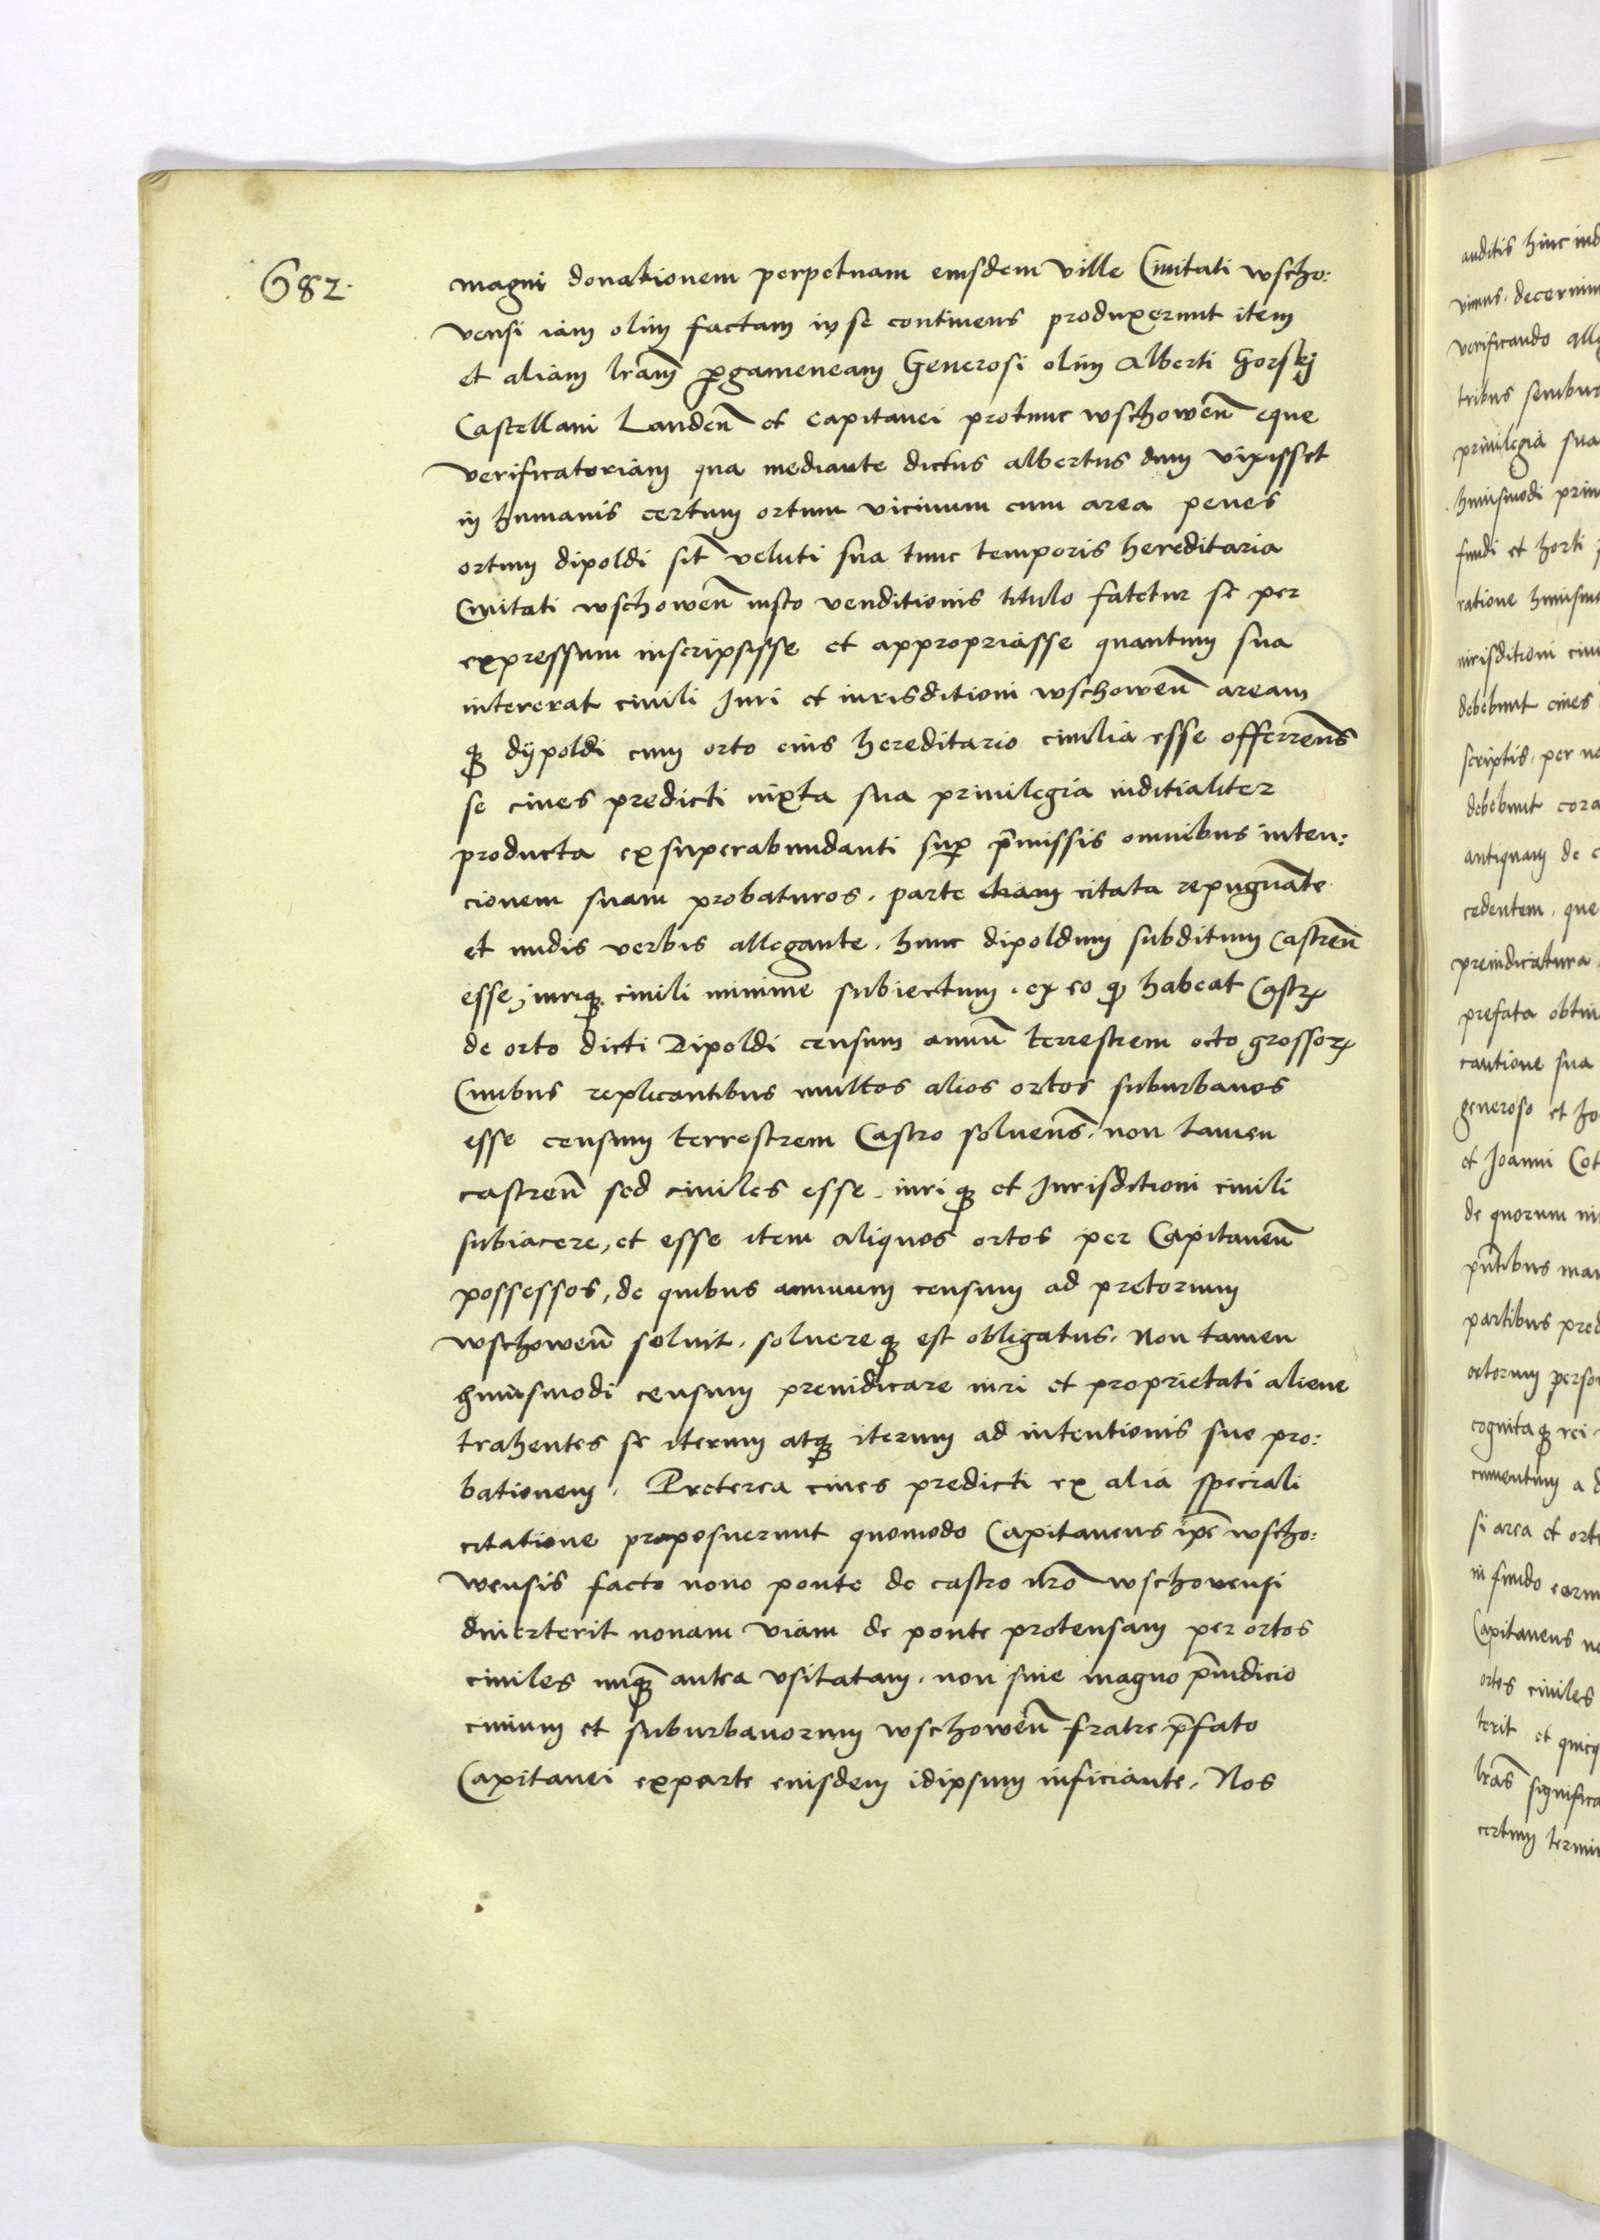 682.
magni donationem perpetuam eiusdem ville Ciuitati wscho:
vensi iam olim factam in se continens produxerunt item
et aliam lrãm pgameneam Generosi olim Alberti Gorskij
Castellani Landeñ et Capitanei protunc wschoweñ eque
verificatoriam qua mediante dictus albertus dum vixisset
in humanis certum ortum vicinum cum area penes
ortum dipoldi sit veluti sua tunc temporis hereditaria
Ciuitati wschoweñ iusto venditionis titulo fatetur se per
expressum inscripsisse et appropriasse quantum sua
intererat ciuili Iuri et iurisditioni wschoweñ aream
q dijpoldi cum orto eius hereditario ciuilia esse offerreñs
se ciues predicti iuxta sua priuilegia iuditialiter
producta ex superabundanti sup p̃missis omnibus inten:
cionem suam probaturos. parte etiam citata repugnãte
et nudis verbis allegante. hunc dipoldum subditum Castreñ
esse, iuriq ciuili minime subiectum. ex eo q habeat Castrũ
de orto dicti Dipoldi censum annũ terrestrem octo grossorꝝ
Ciuibus replicantibus multos alios ortos suburbanos
esse censum terrestrem Castro solueñs. non tamen
castreñ sed ciuiles esse. iuri q et Iurisditioni ciuili
subiacere, et esse item aliquos ortos per Capitaneũ
possessos, de quibus annuum censum ad pretorium
wschoweñ soluit. soluere q est obligatus. Non tamen
huiusmodi censum preiudicare iuri et proprietati aliene
trahentes se iterum atq iterum ad intentionis sue pro:
bationem. Preterea ciues predicti ex alia speciali
citatione proposuerunt quomodo Capitaneus ip̃e wscho:
wensis facto nouo ponte de castro nr̃o wschouensi
diuerterit nouam viam de ponte protensam per ortos
ciuiles nuq̃ antea vsitatam. non sine magno p̃iudicio
ciuium et suburbanorum wschoweñ fratre p̃fato
Capitanei exparte eiusdem idipsum inficiante. Nos
auditis hinc ind
decerni
verificando all
tribus
priuilegia sua
huiusmodi
fundi et horti
ratione huiusm
iurisditioni
debebunt ciues
scriptis. per no
debebunt cora
antiquam de
cedentem. que
preiudicatura
prefata obtin
cautione sua
generoso et ho
et Joanni Cot
de quorum
pñtibus
partibus pred
person
cognita q rei
a
si area et orto
in fundo
Capitaneus
ortos ciuiles
terit et
lrãs significa
certum termi